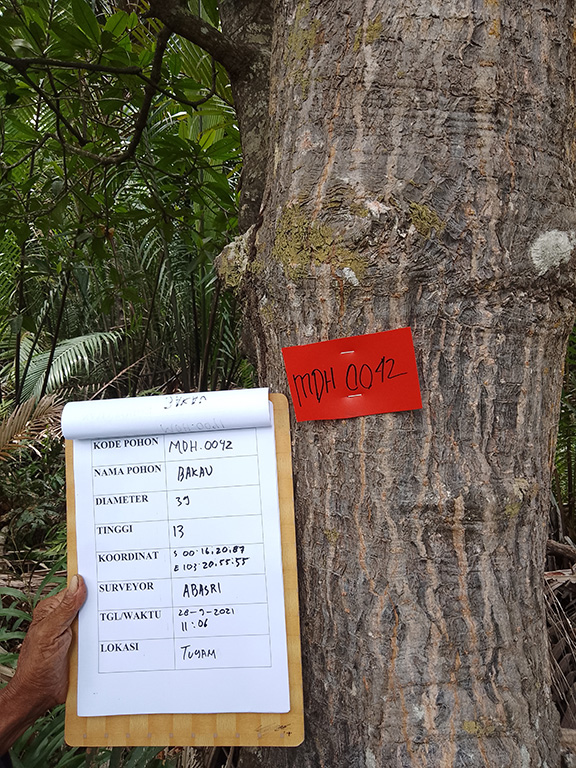 MDH 0042
KODE POHON MDH.0042
NAMA POHON BAKAU
DIAMETER 39
TINGGI 13
KOORDINAT S 00:16,20,87
E 103:20,55:55
SURVEYOR ABASRI
TGL/WAKTU 28-9-2021
11:06
LOKASI TUYAM